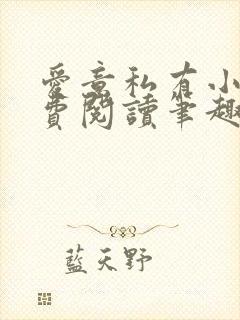 愛意私有小
費閱讀筆趣
藍天野